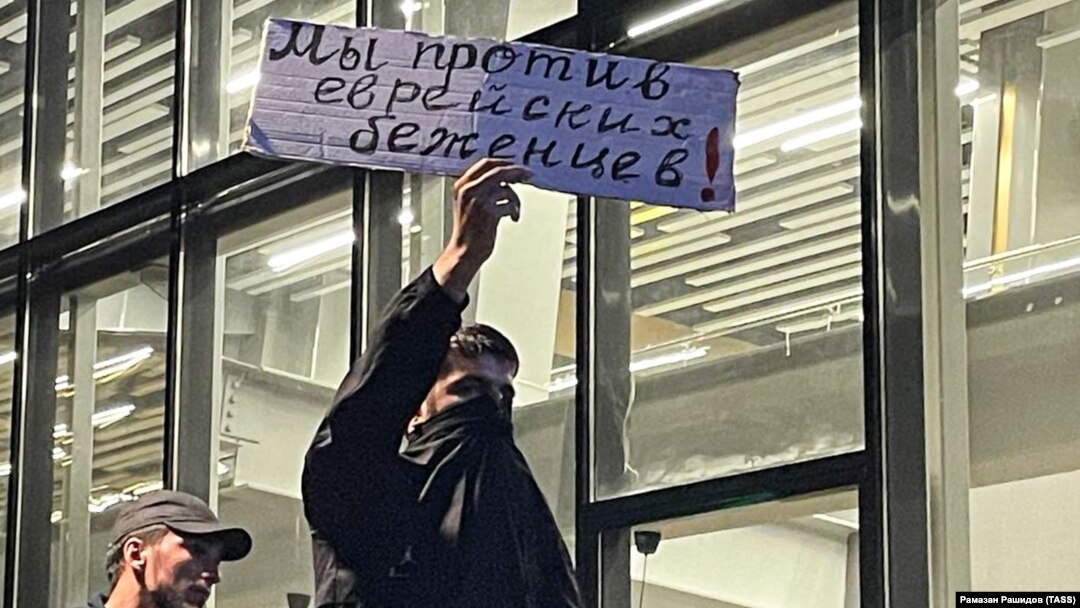 Мы против
еврейских
беженцев!
Рамазан Рашидов (TASS)